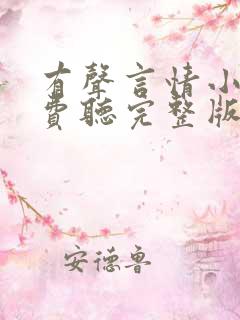 有聲言情小
費聽完整版
安德魯